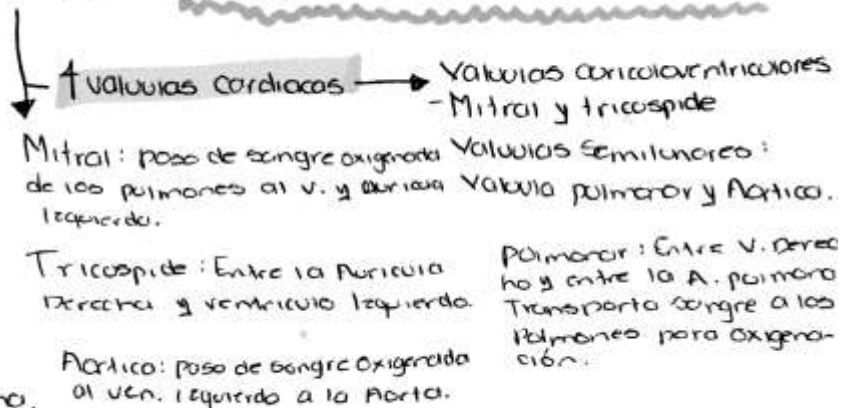 4 Valvulas Cardiacas → Valvulas auriculoventriculares
- Mitral y tricuspide
Mitral: paso de sangre oxigenada
de los pulmones al v. y auricula
Izquierda.
Valvulas Semilunares:
Valvula pulmonar y Aortica.
Tricuspide: Entre la Auricula
Derecha y ventriculo Izquierdo.
Pulmonar: Entre V. Derec
ho y entre la A. pulmona
Transporta sangre a los
Pulmones para oxigena-
ción.
Aortica: paso de sangre Oxigenada
al ven. izquierdo a la Aorta.